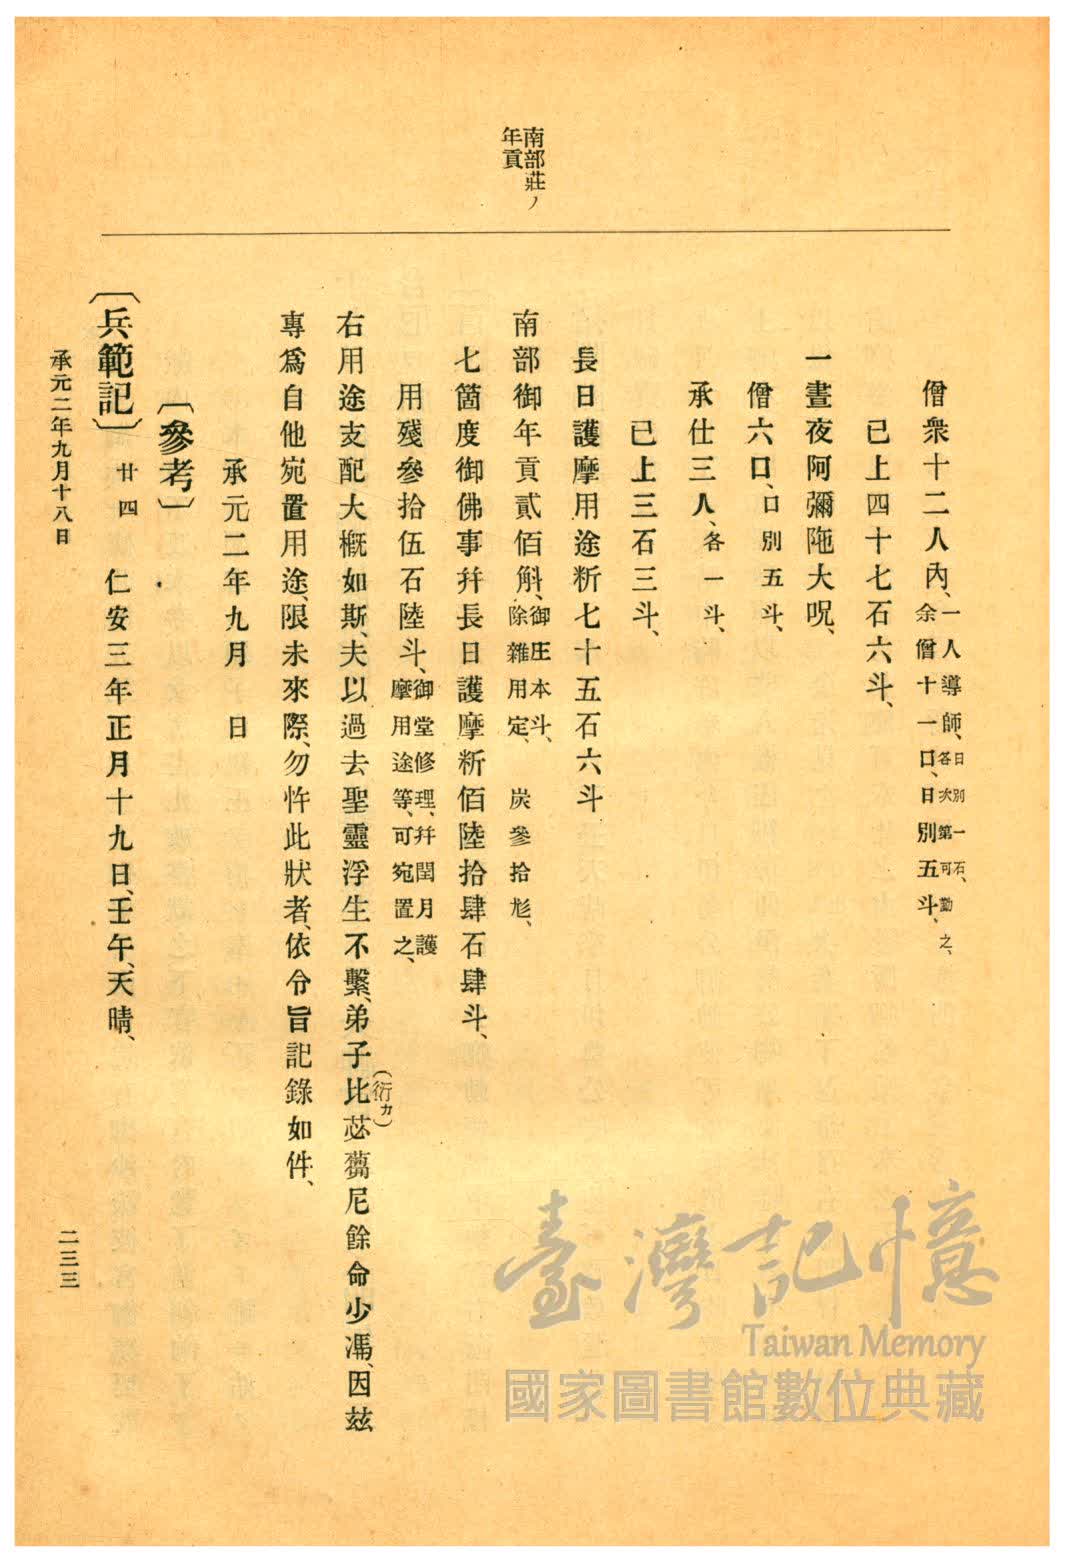 南部莊ノ
年貢
僧衆十二人內、一人導師、日別一石、各次第可勤之、余僧十一口、日別五斗、
已上四十七石六斗、
一晝夜阿彌陁大呪、
僧六口、口別五斗、
承仕三人、各一斗、
已上三石三斗、
長日護摩用途斫七十五石六斗
南部御年貢貳佰斛、御庄本斗、除雜用定、炭參拾彪、
七箇度御佛事幷長日護摩斫佰陸拾肆石肆斗、
用殘參拾伍石陸斗、御堂修理、幷閏月護摩用途等、可宛置之、
右用途支配大槪如斯、夫以過去聖靈浮生不繫、弟子比苾蒭尼餘命少馮、因玆
(衍カ)
專爲自他宛置用途、限未來際、勿忤此狀者、依令旨記錄如件、
承元二年九月 日
〔參考〕
〔兵範記〕 廿四 仁安三年正月十九日、壬午、天晴、
承元二年九月十八日
二三三
臺灣記憶
Taiwan Memory
國家圖書館數位典藏